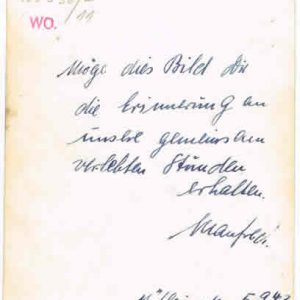 WO.
11
Möge dies Bild Dir
die Erinnerung an
unsre gemeinsam
verlebten Stunden
erhalten.
Manfred.